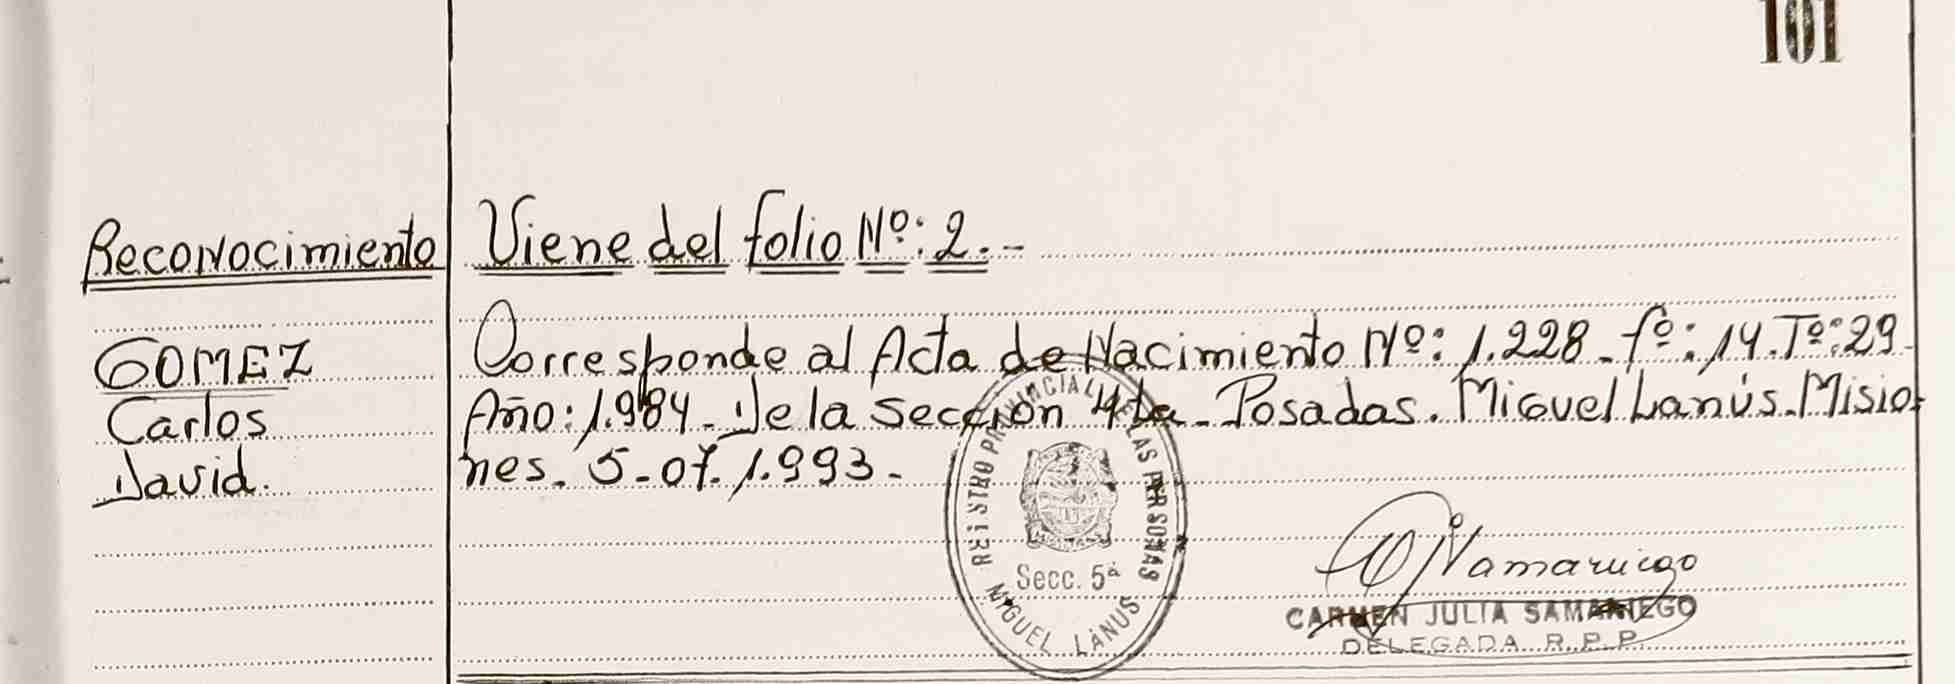 101
Reconocimiento
Viene del folio Nº: 2.-
GOMEZ
Carlos
David.
Corresponde al Acta de Nacimiento Nº: 1.228. fº: 14. Tº: 29.
Año: 1.984. De la sección 4ta. Posadas. Miguel Lanús. Misio-
nes. 5-07. 1.993.-
REGISTRO PROVINCIAL DE LAS PERSONAS
Secc. 5ª
MIGUEL LANUS
CARMEN JULIA SAMANIEGO
DELEGADA R.P.P.